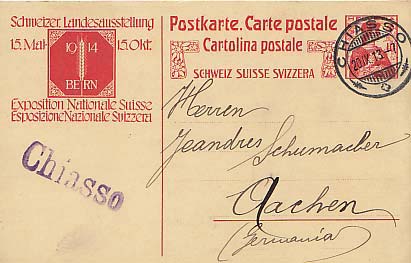 Schweizer. Landesausstellung
15. Mai 15. Okt.
19 14
BERN
Exposition Nationale Suisse
Esposizione Nazionale Svizzera
Postkarte. Carte postale
Cartolina postale
SCHWEIZ SUISSE SVIZZERA
CHIASSO
Chiasso
Herren
Jeandres Schumacher
Aachen
(Germania)